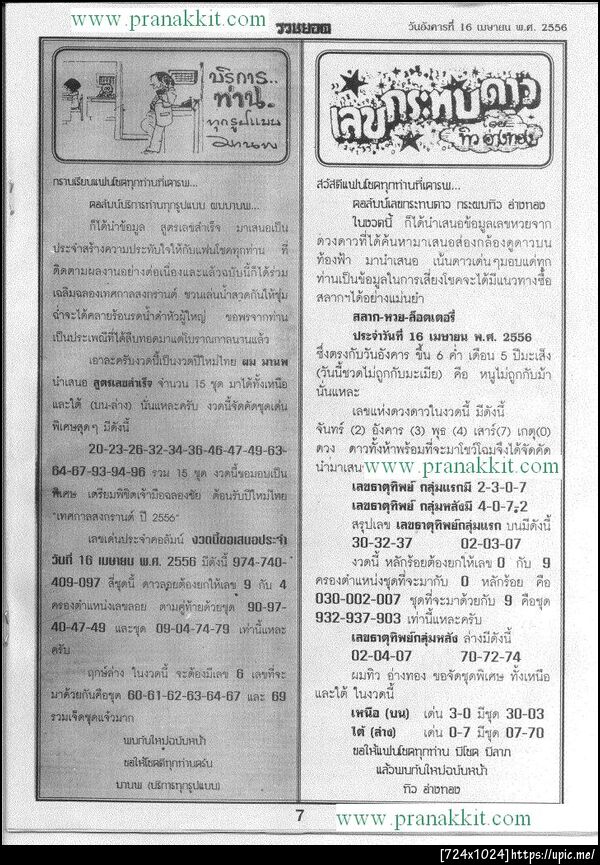 www.pranakkit.com
รวยยอด
วันอังคารที่ 16 เมษายน พ.ศ. 2556
บริการ..
ท่าน.
ทุกรูปแบบ
มานพ
กราบเรียนแฟนโชคทุกท่านที่เคารพ...
คอลัมน์บริการท่านทุกรูปแบบ ผมมานพ...
ก็ได้นำข้อมูล สูตรเลขสำเร็จ มาเสนอเป็น
ประจำสร้างความประทับใจให้กับแฟนโชคทุกท่าน ที่
ติดตามผลงานอย่างต่อเนื่องและแล้วฉบับนี้ก็ได้ร่วม
เฉลิมฉลองเทศกาลสงกรานต์ ชวนเล่นน้ำสาดกันให้ชุ่ม
ฉ่ำจะได้คลายร้อนรดน้ำดำหัวผู้ใหญ่ ขอพรจากท่าน
เป็นประเพณีที่ได้สืบทอดมาแต่โบราณกาลนานแล้ว
เอาละครับงวดนี้เป็นงวดปีใหม่ไทย ผม มานพ
นำเสนอ สูตรเลขสำเร็จ จำนวน 15 ชุด มาได้ทั้งเหนือ
และใต้ (บน-ล่าง) นั่นแหละครับ งวดนี้จัดคัดชุดเด่น
พิเศษสุดๆ มีดังนี้
20-23-26-32-34-36-46-47-49-63-
64-67-93-94-96 รวม 15 ชุด งวดนี้ขอมอบเป็น
พิเศษ เตรียมพิชิตเจ้ามือฉลองชัย ต้อนรับปีใหม่ไทย
"เทศกาลสงกรานต์ ปี 2556"
เลขเด่นประจำคอลัมน์ งวดนี้ขอเสนอประจำ
วันที่ 16 เมษายน พ.ศ. 2556 มีดังนี้ 974-740-
409-097 สี่ชุดนี้ ดาวลอยต้องยกให้เลข 9 กับ 4
ครองตำแหน่งเลขลอย ตามคู่ท้ายด้วยชุด 90-97-
40-47-49 และชุด 09-04-74-79 เท่านี้แหละ
ครับ
ฤกษ์ล่าง ในงวดนี้ จะต้องมีเลข 6 เลขที่จะ
มาด้วยกันคือชุด 60-61-62-63-64-67 และ 69
รวมเจ็ดชุดแจ๋วมาก
พบกันใหม่ฉบับหน้า
ขอให้โชคดีทุกท่านครับ
มานพ (บริการทุกรูปแบบ)
เลขกระทบดาว
โดย
ทิว อ่างทอง
สวัสดีแฟนโชคทุกท่านที่เคารพ...
คอลัมน์เลขกระทบดาว กระผมทิว อ่างทอง
ในงวดนี้ ก็ได้นำเสนอข้อมูลเลขหวยจาก
ดวงดาวที่ได้ค้นหามาเสนอส่องกล้องดูดาวบน
ท้องฟ้า มานำเสนอ เน้นดาวเด่นๆมอบแด่ทุก
ท่านเป็นข้อมูลในการเสี่ยงโชคจะได้มีแนวทางซื้อ
สลากฯได้อย่างแม่นยำ
สลาก-หวย-ล็อตเตอรี่
ประจำวันที่ 16 เมษายน พ.ศ. 2556
ซึ่งตรงกับวันอังคาร ขึ้น 6 ค่ำ เดือน 5 ปีมะเส็ง
(วันนี้ชวดไม่ถูกกับมะเมีย) คือ หนูไม่ถูกกับม้า
นั่นแหละ
เลขแห่งดวงดาวในงวดนี้ มีดังนี้
จันทร์ (2) อังคาร (3) พุธ (4) เสาร์(7) เกตุ(0)
ดวง ดาวทั้งห้าพร้อมที่จะมาโชว์โฉมจึงได้จัดคัด
นำมาเสนอ
www.pranakkit.com
เลขธาตุทิพย์ กลุ่มแรกมี 2-3-0-7
เลขธาตุทิพย์ กลุ่มหลังมี 4-0-7-2
สรุปเลข เลขธาตุทิพย์กลุ่มแรก บนมีดังนี้
30-32-37 02-03-07
งวดนี้ หลักร้อยต้องยกให้เลข 0 กับ 9
ครองตำแหน่งชุดที่จะมากับ 0 หลักร้อย คือ
030-002-007 ชุดที่จะมาด้วยกับ 9 คือชุด
932-937-903 เท่านี้แหละครับ
เลขธาตุทิพย์กลุ่มหลัง ล่างมีดังนี้
02-04-07 70-72-74
ผมทิว อ่างทอง ขอจัดชุดพิเศษ ทั้งเหนือ
และใต้ ในงวดนี้
เหนือ (บน) เด่น 3-0 มีชุด 30-03
ใต้ (ล่าง) เด่น 0-7 มีชุด 07-70
ขอให้แฟนโชคทุกท่าน มีโชค มีลาภ
แล้วพบกันใหม่ฉบับหน้า
ทิว อ่างทอง
7
www.pranakkit.com
www.pranakkit.com
[724x1024]https://upic.me/